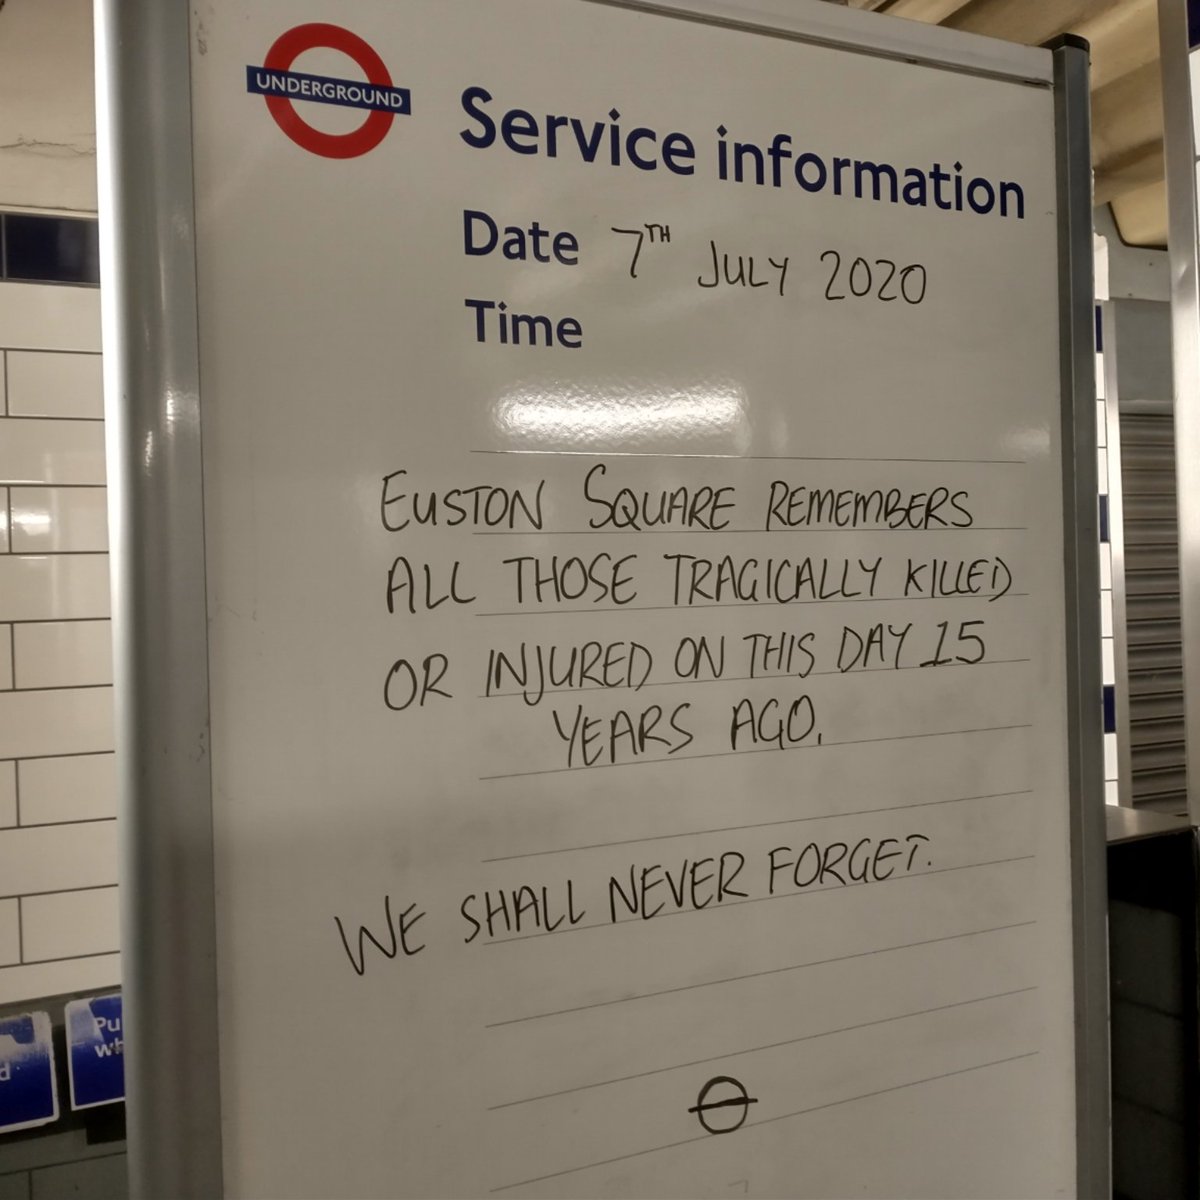 UNDERGROUND
Service information
Date 7TH JULY 2020
Time
EUSTON SQUARE REMEMBERS
ALL THOSE TRAGICALLY KILLED
OR INJURED ON THIS DAY 15
YEARS AGO.
WE SHALL NEVER FORGET.